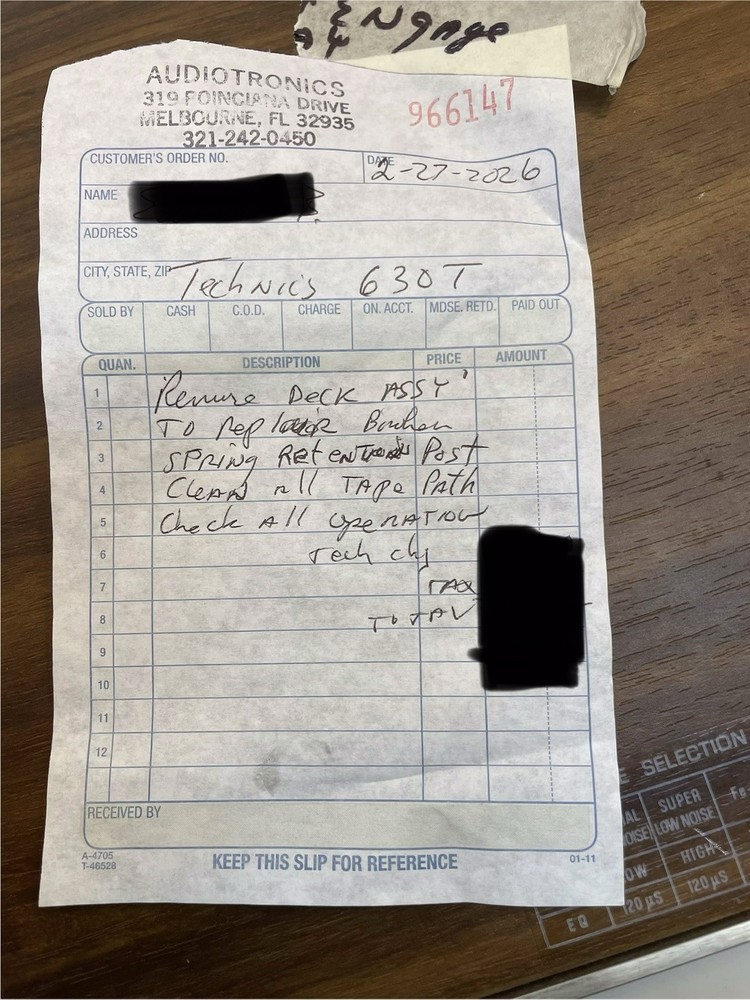 & Ngage
AUDIOTRONICS
319 POINCIANA DRIVE
MELBOURNE, FL 32935
321-242-0450
966147
CUSTOMER'S ORDER NO.
DATE
2-27-2026
NAME
ADDRESS
CITY, STATE, ZIP
Technics 630T
SOLD BY CASH C.O.D. CHARGE ON. ACCT. MDSE. RETD. PAID OUT
QUAN. DESCRIPTION PRICE AMOUNT
1 Remove Deck ASSY
2 TO
3 SPRING Retention Post
4 Clean All Tape Path
5 Check All Operation
6 Tech chg
7 TAX
8 TOTAL
9
10
11
12
RECEIVED BY
A-4705
T-46528
KEEP THIS SLIP FOR REFERENCE
01-11
E SELECTION
SUPER
LOW NOISE
Fe
OW HIGH
EQ 120 µS 120 µS